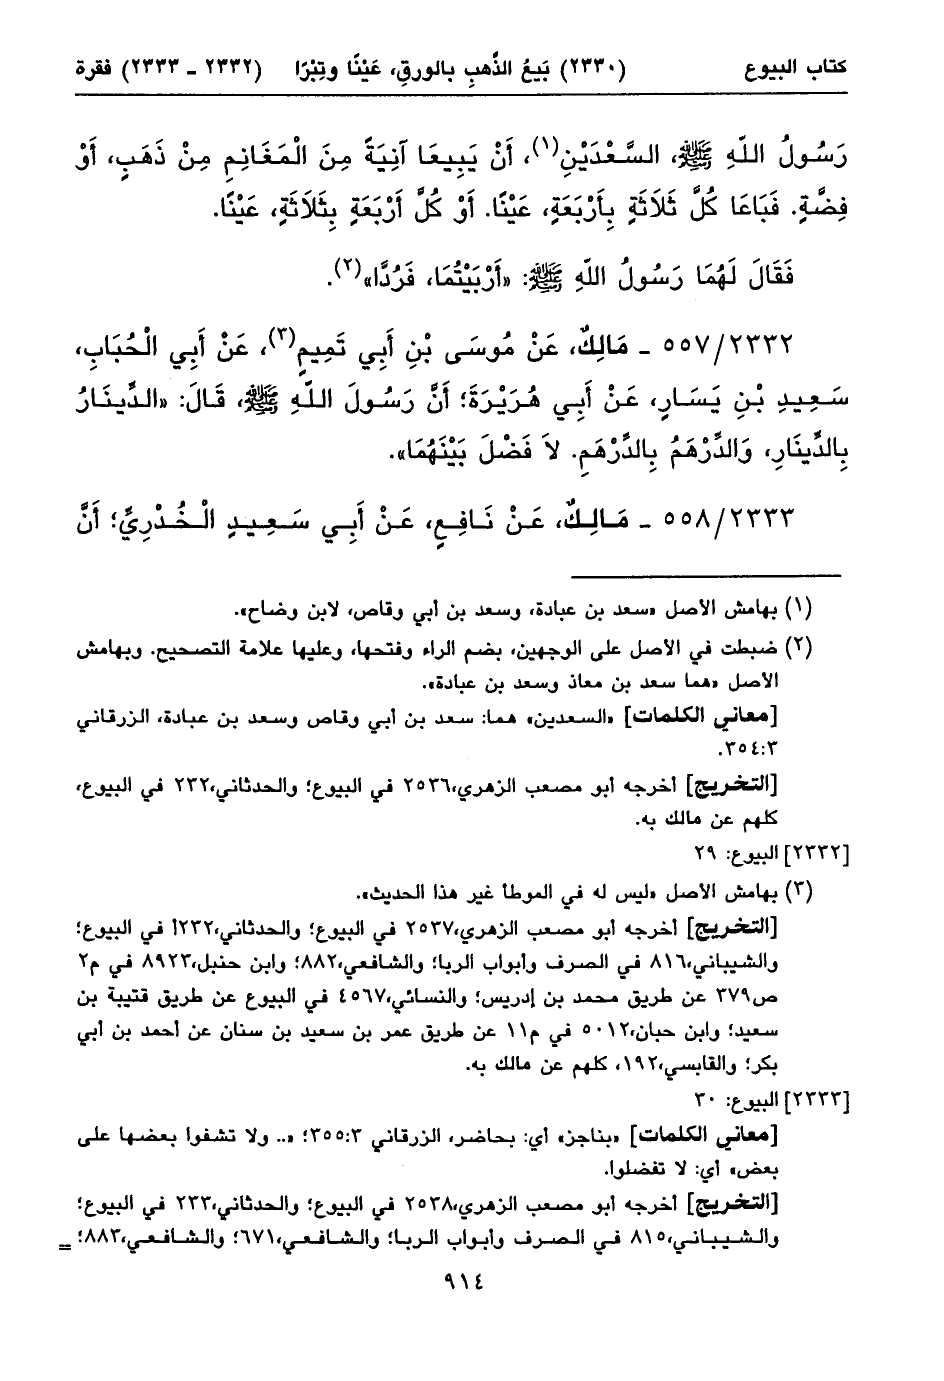 كتاب البيوع (٢٣٣٠) بَيعُ الذَّهبِ بالورِقِ، عَيْنًا وتِبْرًا (٢٣٣٢ ـ ٢٣٣٣) فقرة
رَسُولُ اللّهِ ﷺ، السَّعْدَيْنِ(١)، أَنْ يَبِيعَا آنِيَةً مِنَ الْمَغَانِمِ مِنْ ذَهَبٍ، أَوْ
فِضَّةٍ. فَبَاعَا كُلَّ ثَلَاثَةٍ بِأَرْبَعَةٍ، عَيْنًا. أَوْ كُلَّ أَرْبَعَةٍ بِثَلَاثَةٍ، عَيْنًا.
فَقَالَ لَهُمَا رَسُولُ اللّهِ ﷺ: «أَرْبَيْتُمَا، فَرُدَّا»(٢).
٥٥٧/٢٣٣٢ ـ مَالِكٌ، عَنْ مُوسَى بْنِ أَبِي تَمِيمٍ(٣)، عَنْ أَبِي الْحُبَابِ،
سَعِيدِ بْنِ يَسَارٍ، عَنْ أَبِي هُرَيْرَةَ؛ أَنَّ رَسُولَ اللّهِ ﷺ، قَالَ: «الدِّينَارُ
بِالدِّينَارِ، وَالدِّرْهَمُ بِالدِّرْهَمِ. لاَ فَضْلَ بَيْنَهُمَا».
٥٥٨/٢٣٣٣ ـ مَالِكٌ، عَنْ نَافِعٍ، عَنْ أَبِي سَعِيدٍ الْخُدْرِيِّ؛ أَنَّ
(١) بهامش الأصل «سعد بن عبادة، وسعد بن أبي وقاص، لابن وضاح».
(٢) ضبطت في الأصل على الوجهين، بضم الراء وفتحها، وعليها علامة التصحيح. وبهامش
الأصل «هما سعد بن معاذ وسعد بن عبادة».
[معاني الكلمات] «السعدين» هما: سعد بن أبي وقاص وسعد بن عبادة، الزرقاني
٣٥٤:٣.
[التخريج] أخرجه أبو مصعب الزهري،٢٥٣٦ في البيوع؛ والحدثاني،٢٣٢ في البيوع،
كلهم عن مالك به.
[٢٣٣٢] البيوع: ٢٩
(٣) بهامش الأصل «ليس له في الموطأ غير هذا الحديث».
[التخريج] أخرجه أبو مصعب الزهري،٢٥٣٧ في البيوع؛ والحدثاني،٢٣٢أ في البيوع؛
والشيباني،٨١٦ في الصرف وأبواب الربا؛ والشافعي،٨٨٢؛ وابن حنبل،٨٩٢٣ في م٢
ص٣٧٩ عن طريق محمد بن إدريس؛ والنسائي،٤٥٦٧ في البيوع عن طريق قتيبة بن
سعيد؛ وابن حبان،٥٠١٢ في م١١ عن طريق عمر بن سعيد بن سنان عن أحمد بن أبي
بكر؛ والقابسي،١٩٢، كلهم عن مالك به.
[٢٣٣٣] البيوع: ٣٠
[معاني الكلمات] «بناجز» أي: بحاضر، الزرقاني ٣٥٥:٣؛ «.. ولا تشفوا بعضها على
بعض» أي: لا تفضلوا.
[التخريج] أخرجه أبو مصعب الزهري،٢٥٣٨ في البيوع؛ والحدثاني،٢٣٣ في البيوع؛
والشيباني،٨١٥ في الصرف وأبواب الربا؛ والشافعي،٦٧١؛ والشافعي،٨٨٣؛ =
٩١٤